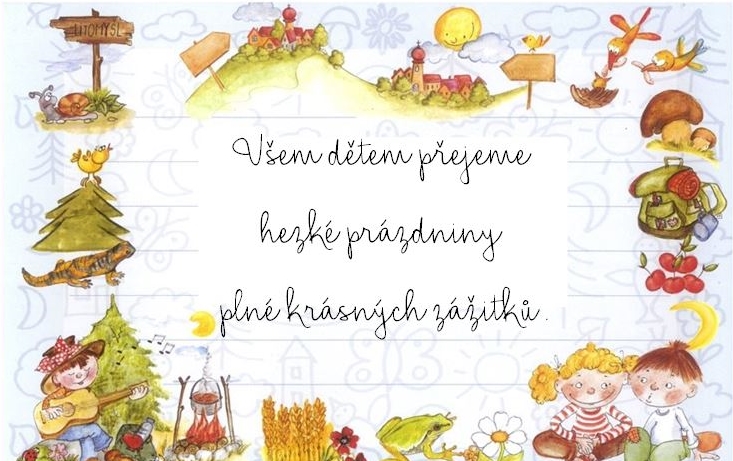 LITOMYŠL
Všem dětem přejeme
hezké prázdniny
plné krásných zážitků.